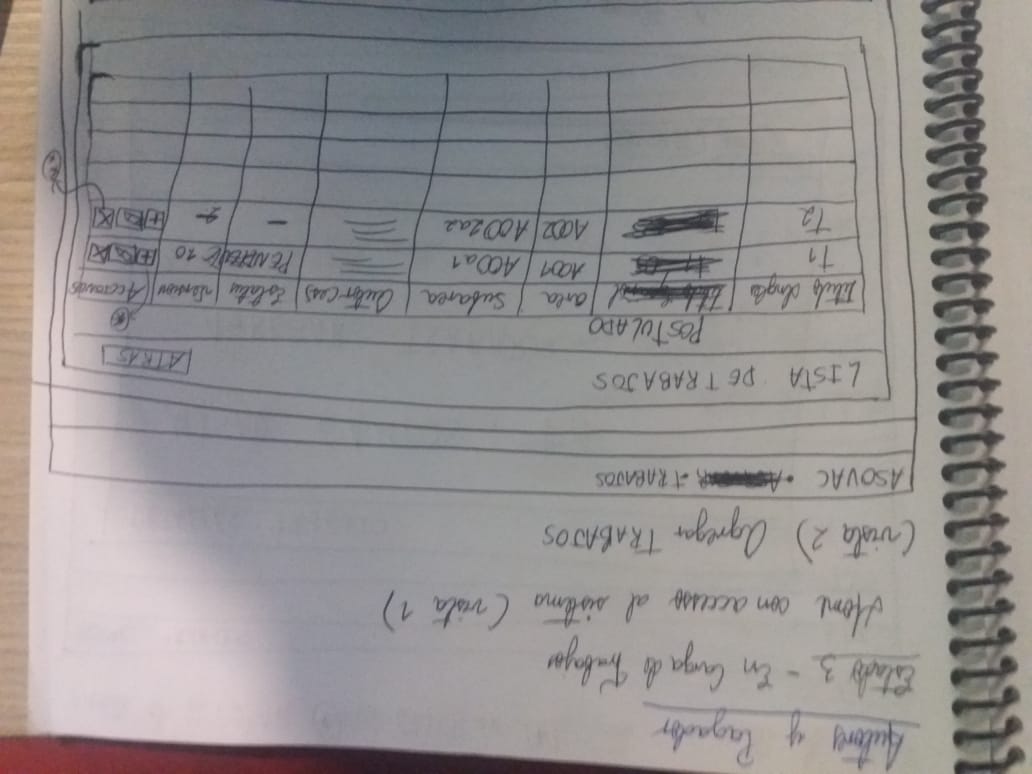 Autores y Pagador
Estado 3 - En Carga de Trabajos
Home con acceso al sistema (vista 1)
(vista 2) Agregar TRABAJOS
ASOVAC • TRABAJOS
LISTA DE TRABAJOS ATRAS
POSTULADO
Titulo área Subarea Autor(es) Estatus Acciones
T1 A001 A00a1 PENDIENTE 20
T2 A002 A002a2 -